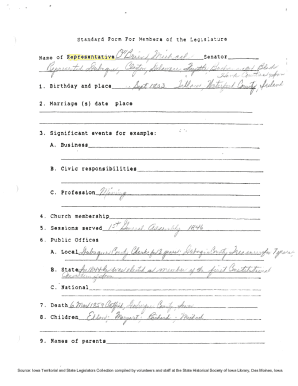 Standard Form For Members of the Legislature
Name of Representative O'Brien, Michael Senator
Represented Dubuque, Clayton, Delaware, Fayette,
1. Birthday and place Sept 1802 Waterford County, Ireland
2. Marriage (s) date place
3. Significant events for example:
A. Business
B. Civic responsibilities
C. Profession Mining
4. Church membership
5. Sessions served 1st General Assembly 1846
6. Public Offices
A. Local Dubuque County Dubuque County Treasurer for years
B. State was elected as member of the first Constitutional
C. National
7. Death 6 Mar 1854 Dubuque County, Iowa
8. Children Ellen, Margaret, Michael
9. Names of parents
Source: Iowa Territorial and State Legislators Collection compiled by volunteers and staff at the State Historical Society of Iowa Library, Des Moines, Iowa.